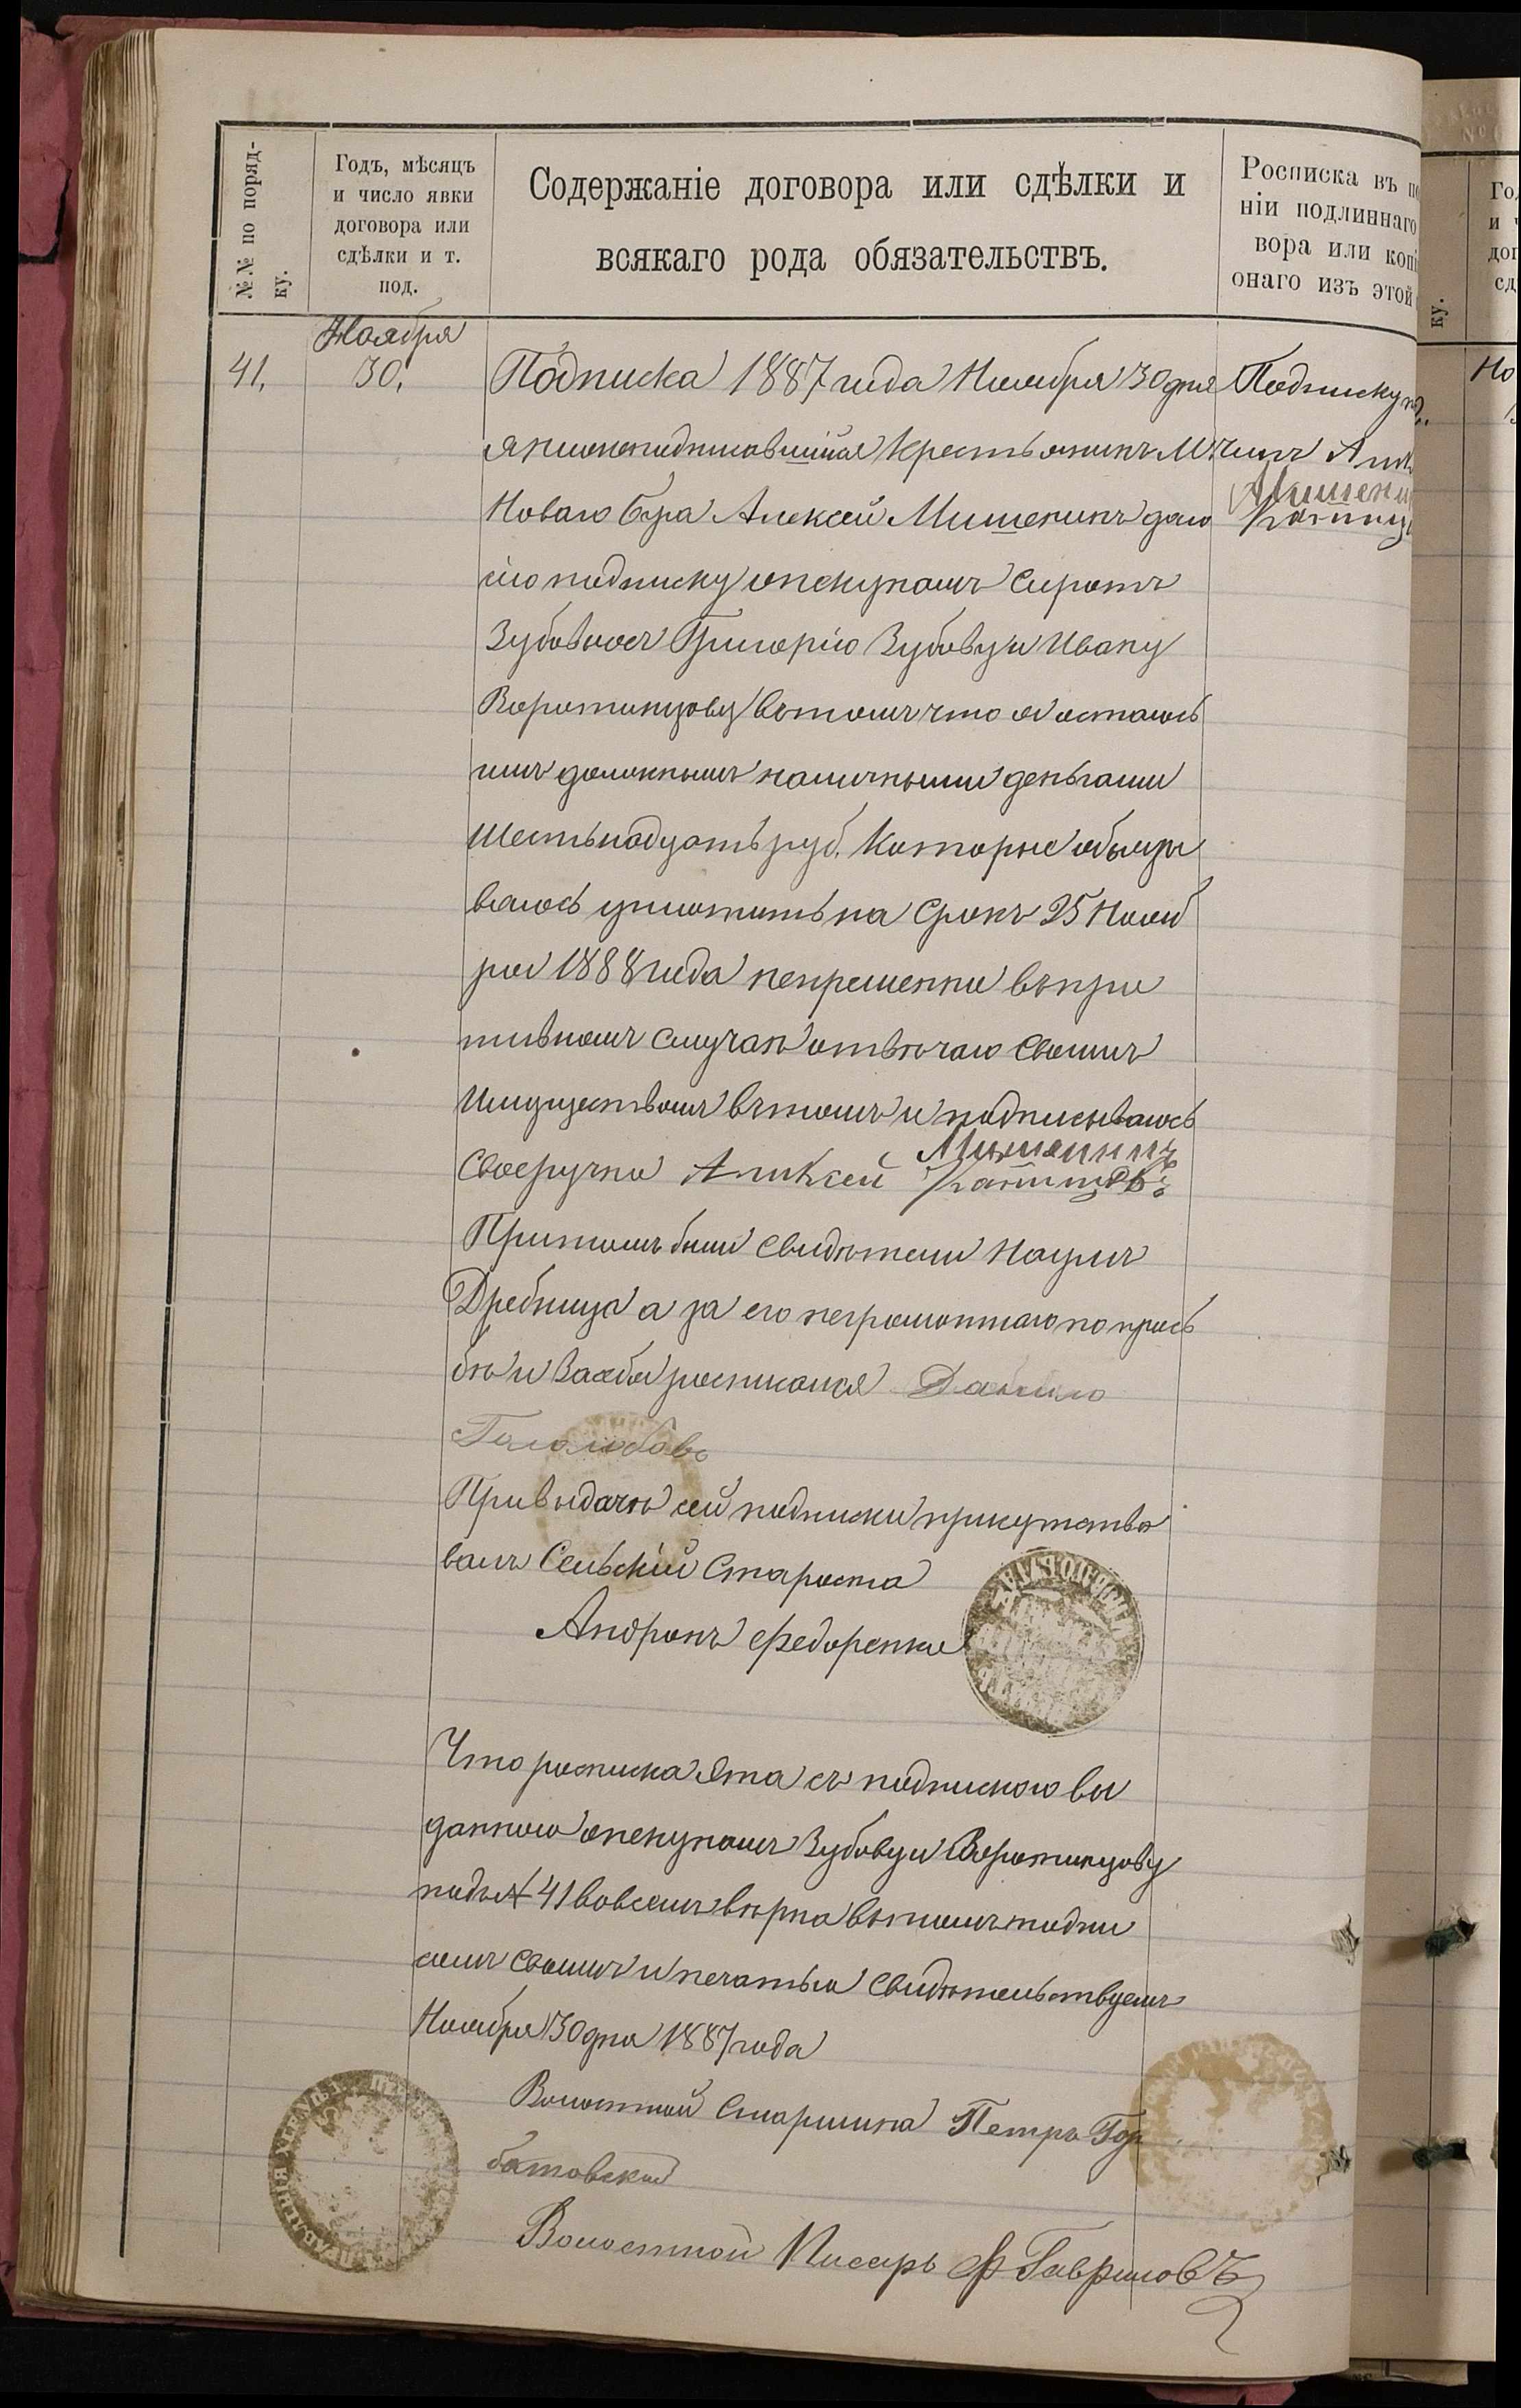 №№ по поряд-
ку.
Годъ, мѣсяцъ
и число явки
договора или
сдѣлки и т.
под.
Содержаніе договора или сдѣлки и
всякаго рода обязательствъ.
Росписка въ по
ніи подлиннаго
вора или копі
онаго изъ этой
Ноября
41. 30.
Подписка 1887 года Ноября 30 дня
я нижеподписавшійся крестьянинъ М.
Новаго Буга Алексей Мишенинъ даю
сію подписку опекунамъ сиротъ
Зубовыхъ Григорію Зубову и Ивану
Воротинцову въ томъ что я остаюсь
имъ должнымъ наличными деньгами
шестьнадцать руб. которые обызы
ваюсь уплатить на срокъ 25 Нояб
ря 1888 года непременно въ про
тивномъ случаѣ отвѣчаю своимъ
имуществомъ въ томъ и подписываюсь
своеручно Аликсей
Мишенинъ
При томъ были свидѣтели Наумъ
Дребница а за его неграмотнаго по прось
бѣ и за себя росписался Данило
Гололобовъ
При выдачѣ сей подписки присутство
валъ Сельскій Староста
Андронъ Федоренко
Что росписка эта съ подпискою вы
данною опекунамъ Зубову и Воротинцову
подъ № 41 во всемъ вѣрна въ томъ подпи
сомъ своимъ и печатью свидѣтельствуемъ
Ноября 30 дня 1887 года
Волостной Старшина Петръ Гор
батовский
Волостной Писарь Ф Гавриловъ
Подписку
чилъ Але
Мишени
Но